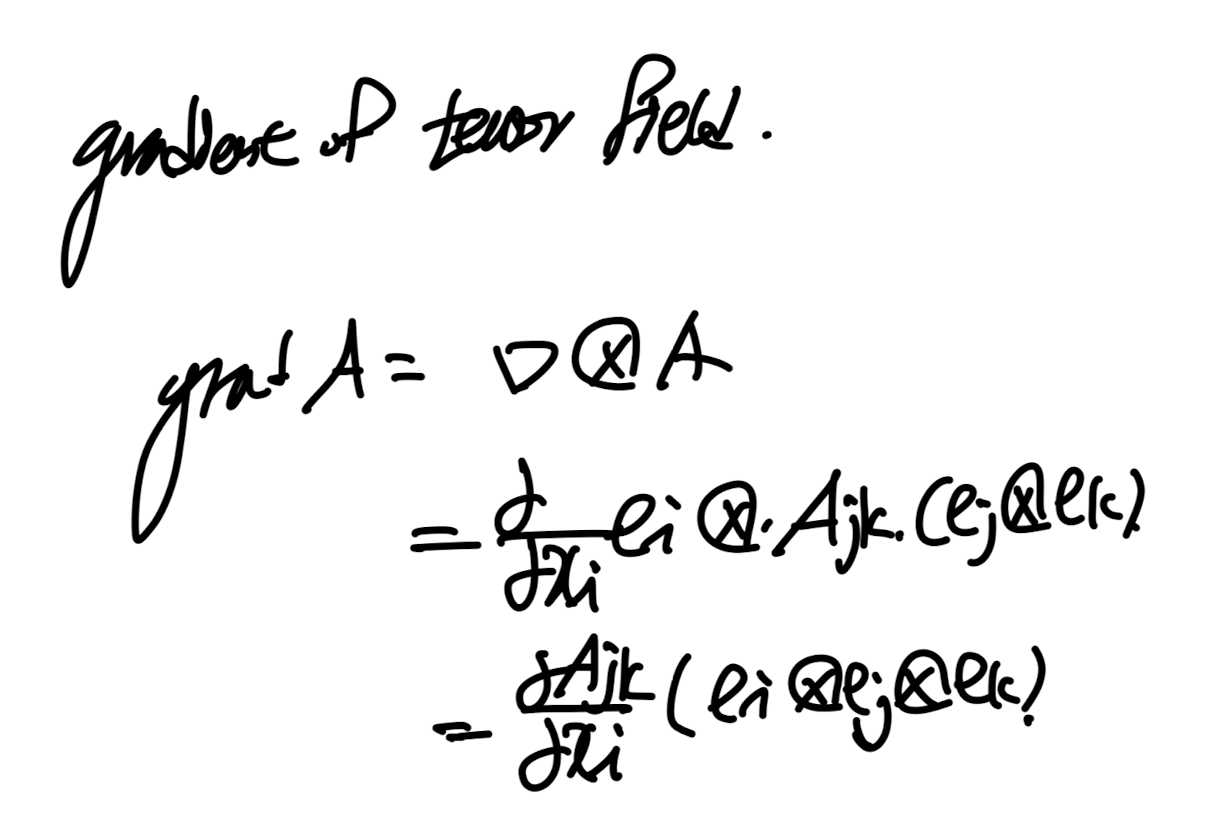 gradient of tensor field.
grad A = ∇⊗A
= ∂/∂xi ei ⊗ Ajk (ej⊗ek)
= ∂Ajk/∂xi (ei⊗ej⊗ek)